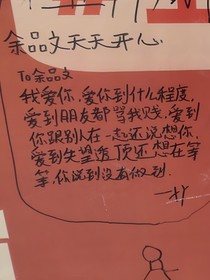 余品文天天开心
To余品文
我爱你,爱你到什么程度,
爱到朋友都骂我贱,爱到
你跟别人在一起还说想你,
爱到失望透顶还想在等
等,你说到没有做到.